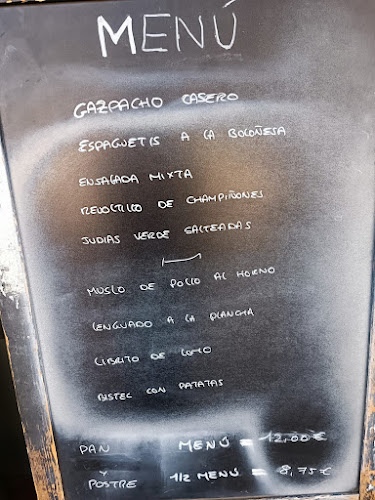 MENÚ
GAZPACHO CASERO
ESPAGUETIS A LA BOLOÑESA
ENSALADA MIXTA
REVOLTILLO DE CHAMPIÑONES
JUDIAS VERDE SALTEADAS
MUSLO DE POLLO AL HORNO
LENGUADO A LA PLANCHA
LIBRITO DE LOMO
BISTEC CON PATATAS
PAN MENÚ = 12,00 €
Y
POSTRE 1/2 MENÚ = 8,75 €